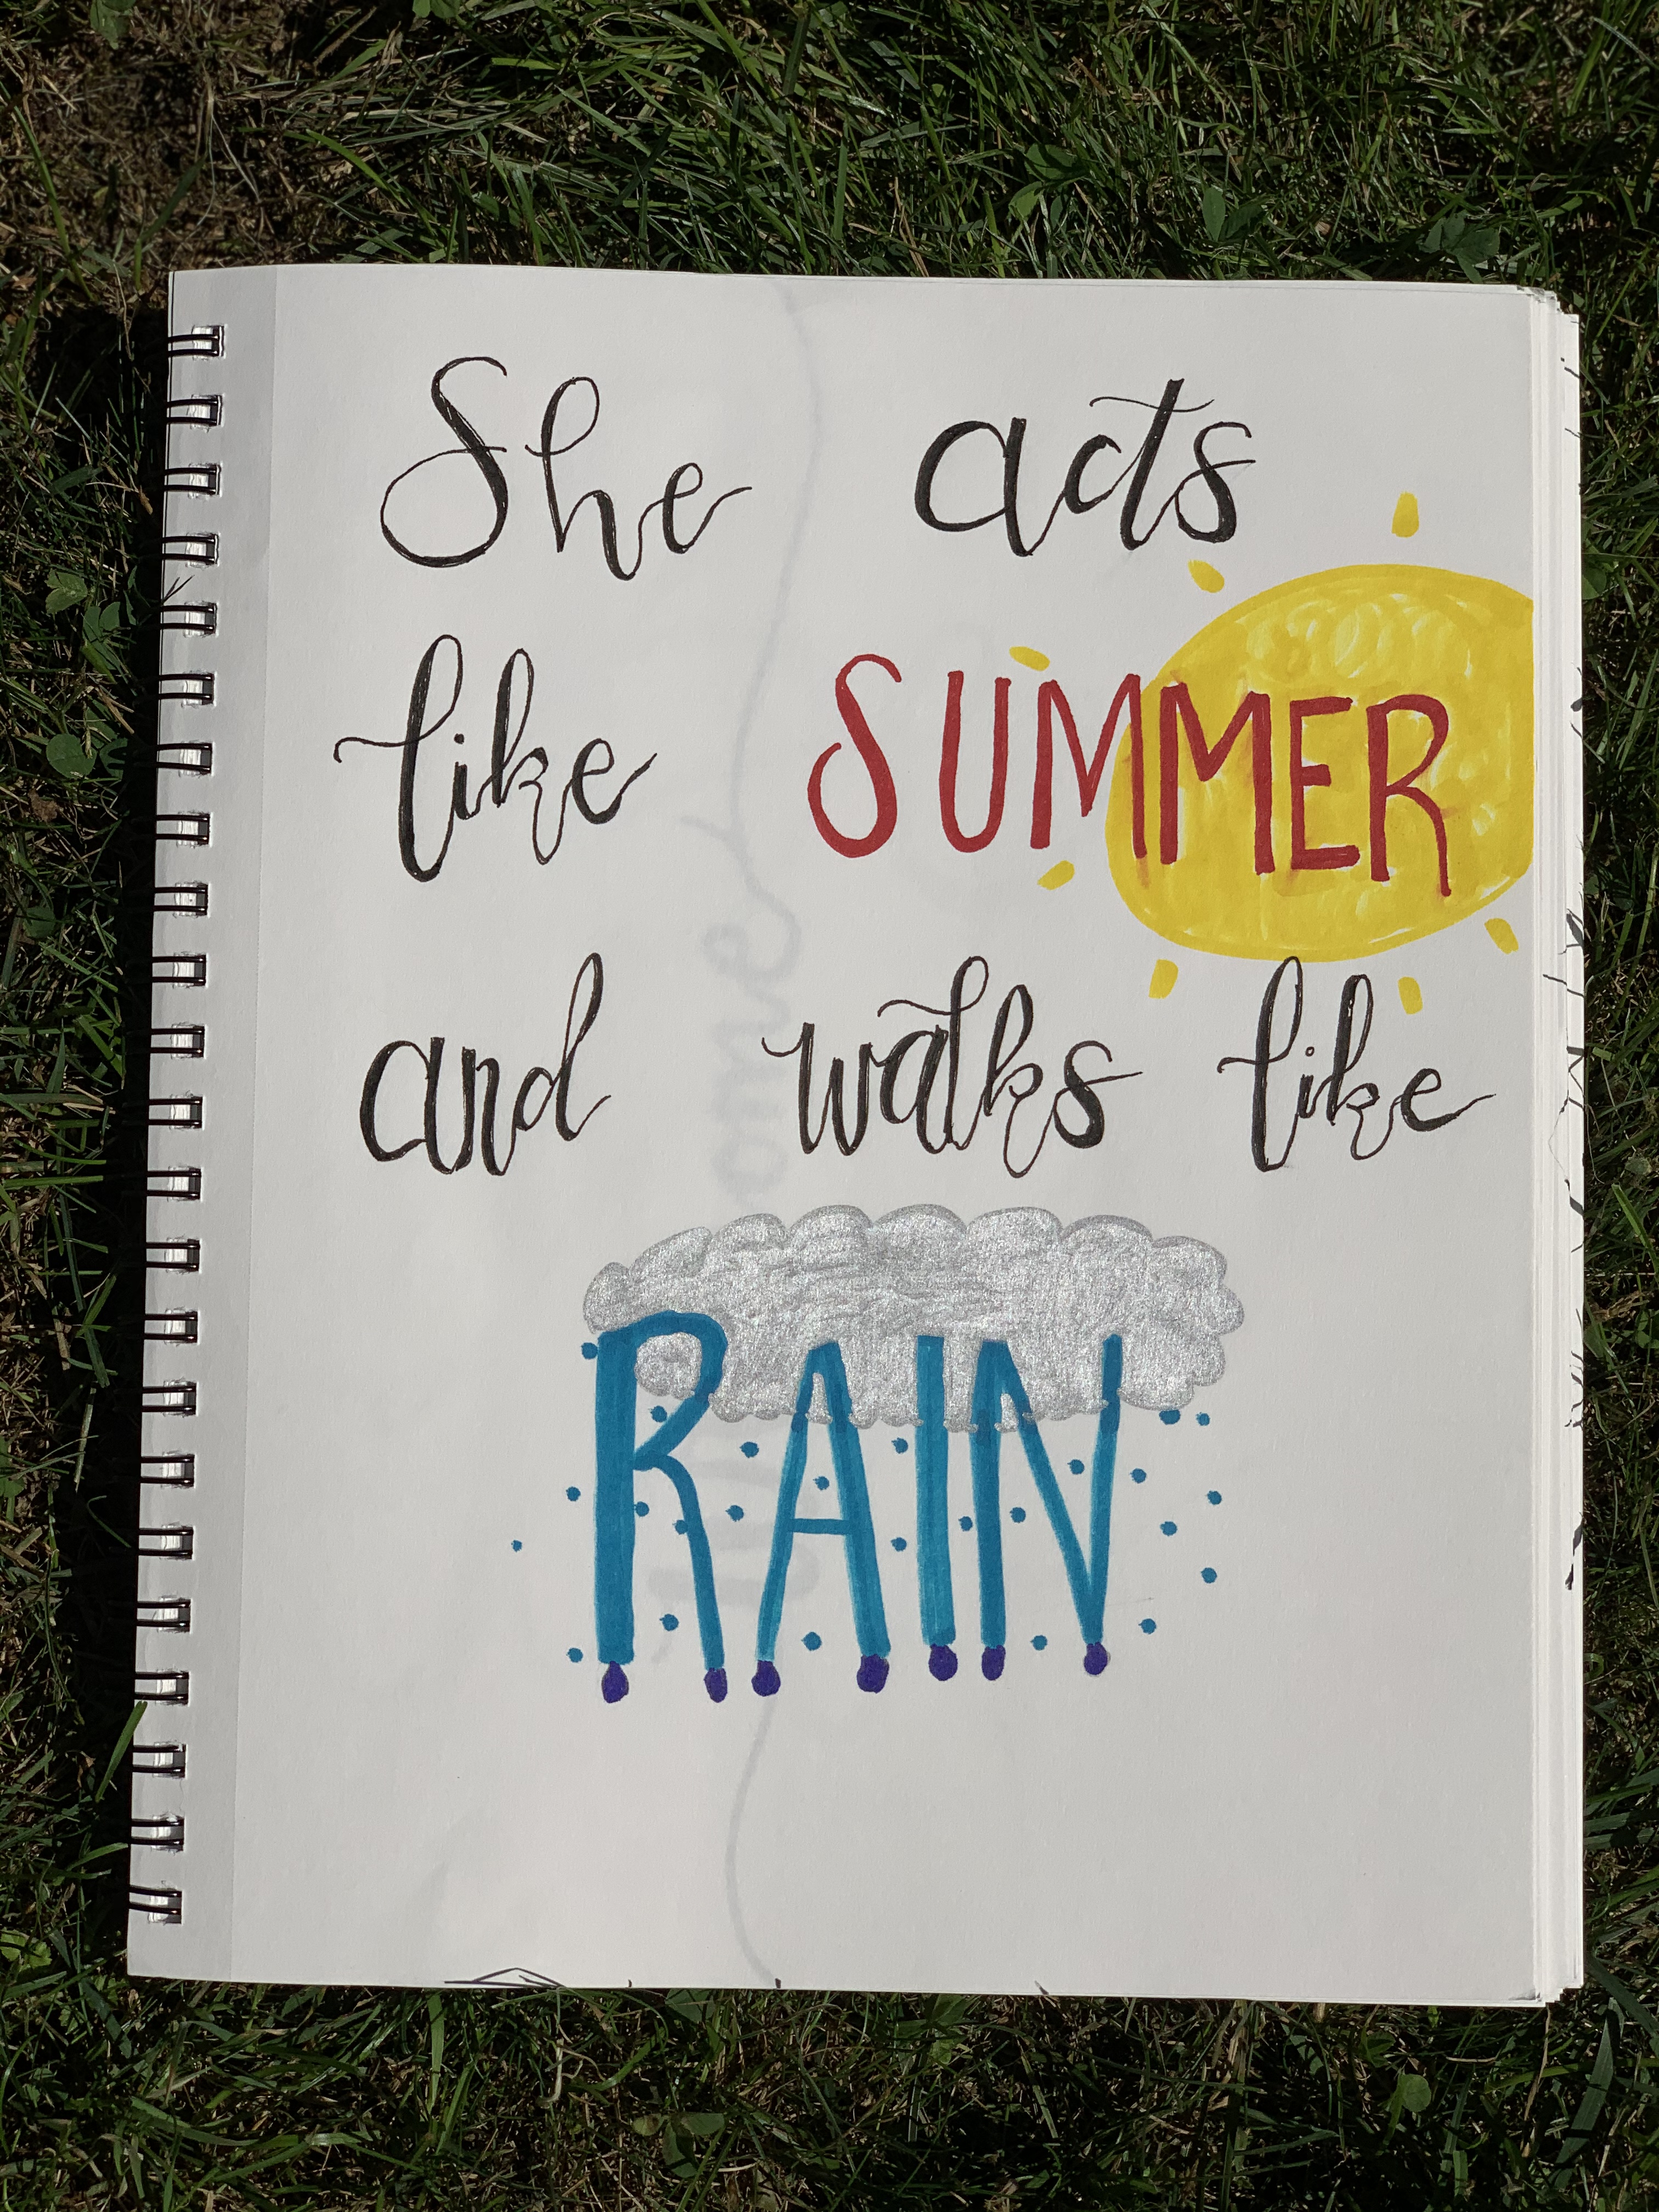 She acts
like SUMMER
and walks like
RAIN